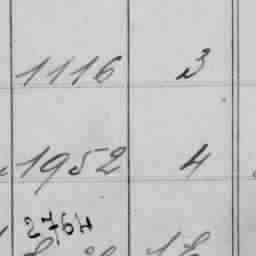 1116 3
1952 4
2764